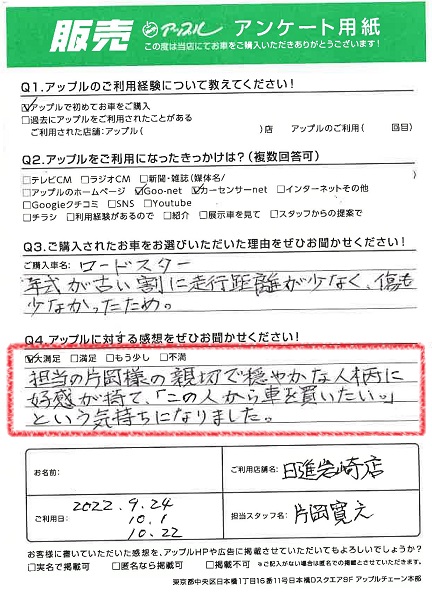 販売 アップル アンケート用紙
この度は当店にてお車をご購入いただきありがとうございます!
Q1.アップルのご利用経験について教えてください!
☑アップルで初めてお車をご購入
□過去にアップルをご利用されたことがある
ご利用された店舗:アップル( )店 アップルのご利用( 回目)
Q2.アップルをご利用になったきっかけは?(複数回答可)
□テレビCM □ラジオCM □新聞・雑誌(媒体名/ )
□アップルのホームページ ☑Goo-net ☑カーセンサーnet □インターネットその他
□Googleクチコミ □SNS □Youtube
□チラシ □利用経験があるので □紹介 □展示車を見て □スタッフからの提案で
Q3.ご購入されたお車をお選びいただいた理由をぜひお聞かせください!
ご購入車名: ロードスター
年式が古い割に走行距離が少なく、傷も
少なかったため。
Q4.アップルに対する感想をぜひお聞かせください!
☑大満足 □満足 □もう少し □不満
担当の片岡様の親切で穏やかな人柄に
好感が持て、「この人から車を買いたい。」
という気持ちになりました。
お名前: ご利用店舗名: 日進岩崎店
ご利用日: 2022.9.24
10.1
10.22
担当スタッフ名: 片岡寛之
お客様に書いていただいた感想を、アップルHPや広告に掲載させていただいてもよろしいでしょうか?
□実名で掲載可 □匿名なら掲載可 □掲載不可 ※ご記入がない場合は匿名での掲載とさせていただきます。
東京都中央区日本橋1丁目16番11号日本橋Dスクエア9F アップルチェーン本部